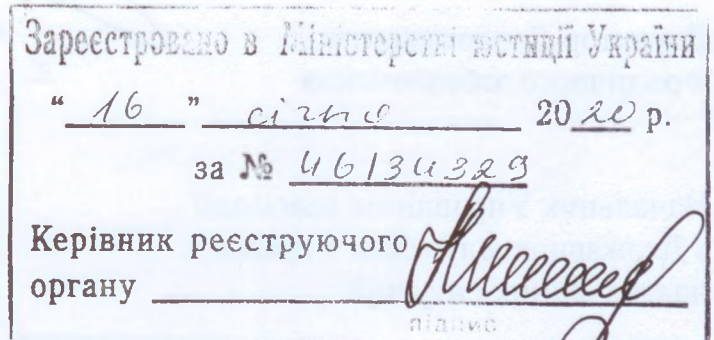 Зареєстровано в Міністерстві юстиції України
“ 16 ” січня 2020 р.
за № 46/34329
Керівник реєструючого
органу
підпис